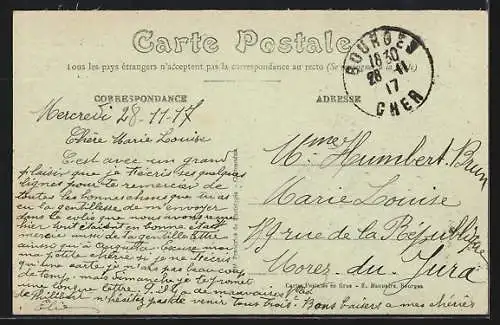 Carte Postale
Tous les pays étrangers n'acceptent pas la correspondance au recto (Se
CORRESPONDANCE
ADRESSE
BOURGES
18 30
28 - 11
17
CHER
Mercredi 28-11-17
Chère Marie Louise
C'est avec un grand
plaisir que je t'écris ces quelques
lignes pour te remercier de
toutes les bonnes choses que tu as
eu la gentillesse de m'envoyer
dans le colis que nous avons
hier tout était en bonne état
merci aussi de ta gentille lettre
ainsi qu'à
ma petite chérie si je ne t'écrit
qu'une carte je n'ai pas beaucoup
de temp, mais Dimanche je te promet
une longue lettre. S'il y a de mauvaises
de Philibert n'hésitez pas de venir tous trois. Bons baisers a mes chéries
Mme Humbert-Brun
Marie Louise
rue de la République
Morez. du Jura
Carte Postale en Gros - E. Bourges